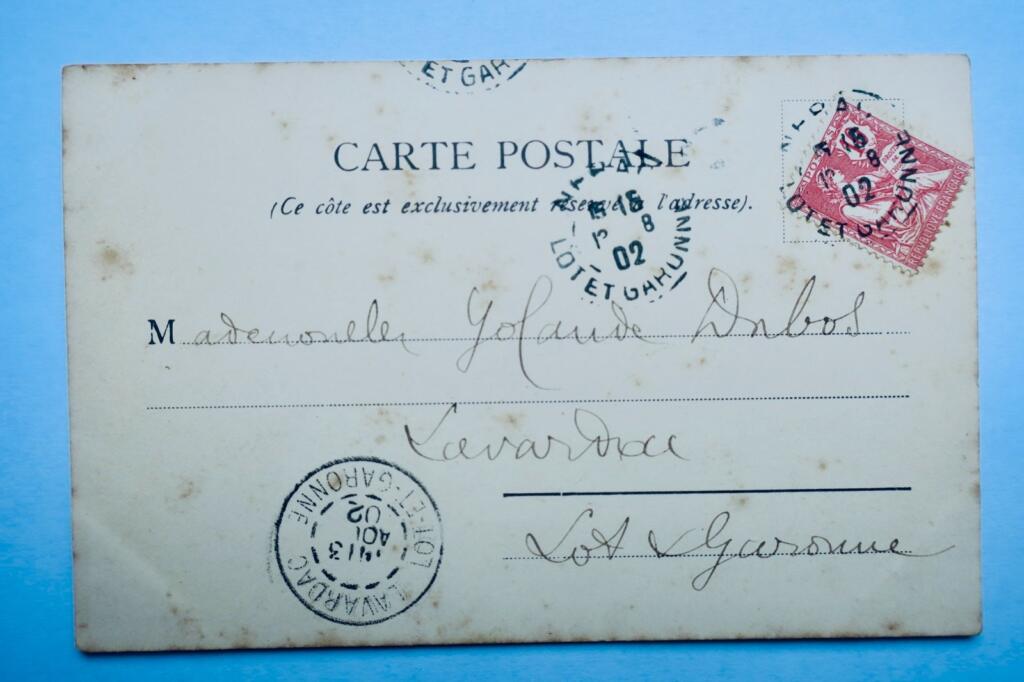 ET GAR
CARTE POSTALE
(Ce côte est exclusivement réservé à l'adresse).
16
8
02
LOT ET GARONNE
POSTES
16
8
02
LOT ET GARONNE
REPUBLIQUE FRANÇAISE
Mademoiselle Yolande Dubos
Lavardac
Lot & Garonne
LAVARDAC
13
AOU
02
LOT-ET-GARONNE